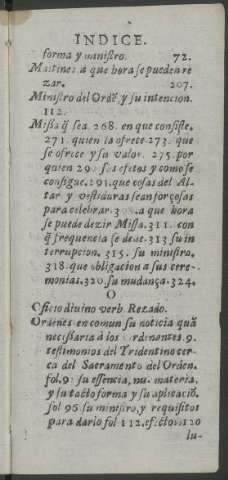 INDICE.
forma y ministro. 72.
Maitines à que hora se pueden re
zar. 207.
Ministro del Ordẽ, y su intencion.
112.
Missa q̃ sea. 268. en que consiste.
271. quien la ofrece. 273. que
se ofrece y su valor. 275. por
quien 290 sus efetos y como se
consigue. 291. que cosas del Al-
tar y vestiduras sean forçosas
para celebrar. a que hora
se puede dezir Missa. 311. con
q̃ frequencia se deue. 313 su in
terrupcion. 315. su ministro.
318. que obligacion a sus cere-
monias. 320. su mudança. 324.
O
Oficio diuino verb Rezado.
Ordenes en comun su noticia quã
necessaria à los Ordenantes. 9.
testimonios del Tridentino cer-
ca del Sacramento del Orden.
fol. 9. su essencia, nu. materia,
y su tacto forma y su aplicaciõ.
fol 96 su ministro, y requisitos
para darlo fol 112. efectos 120
lu-